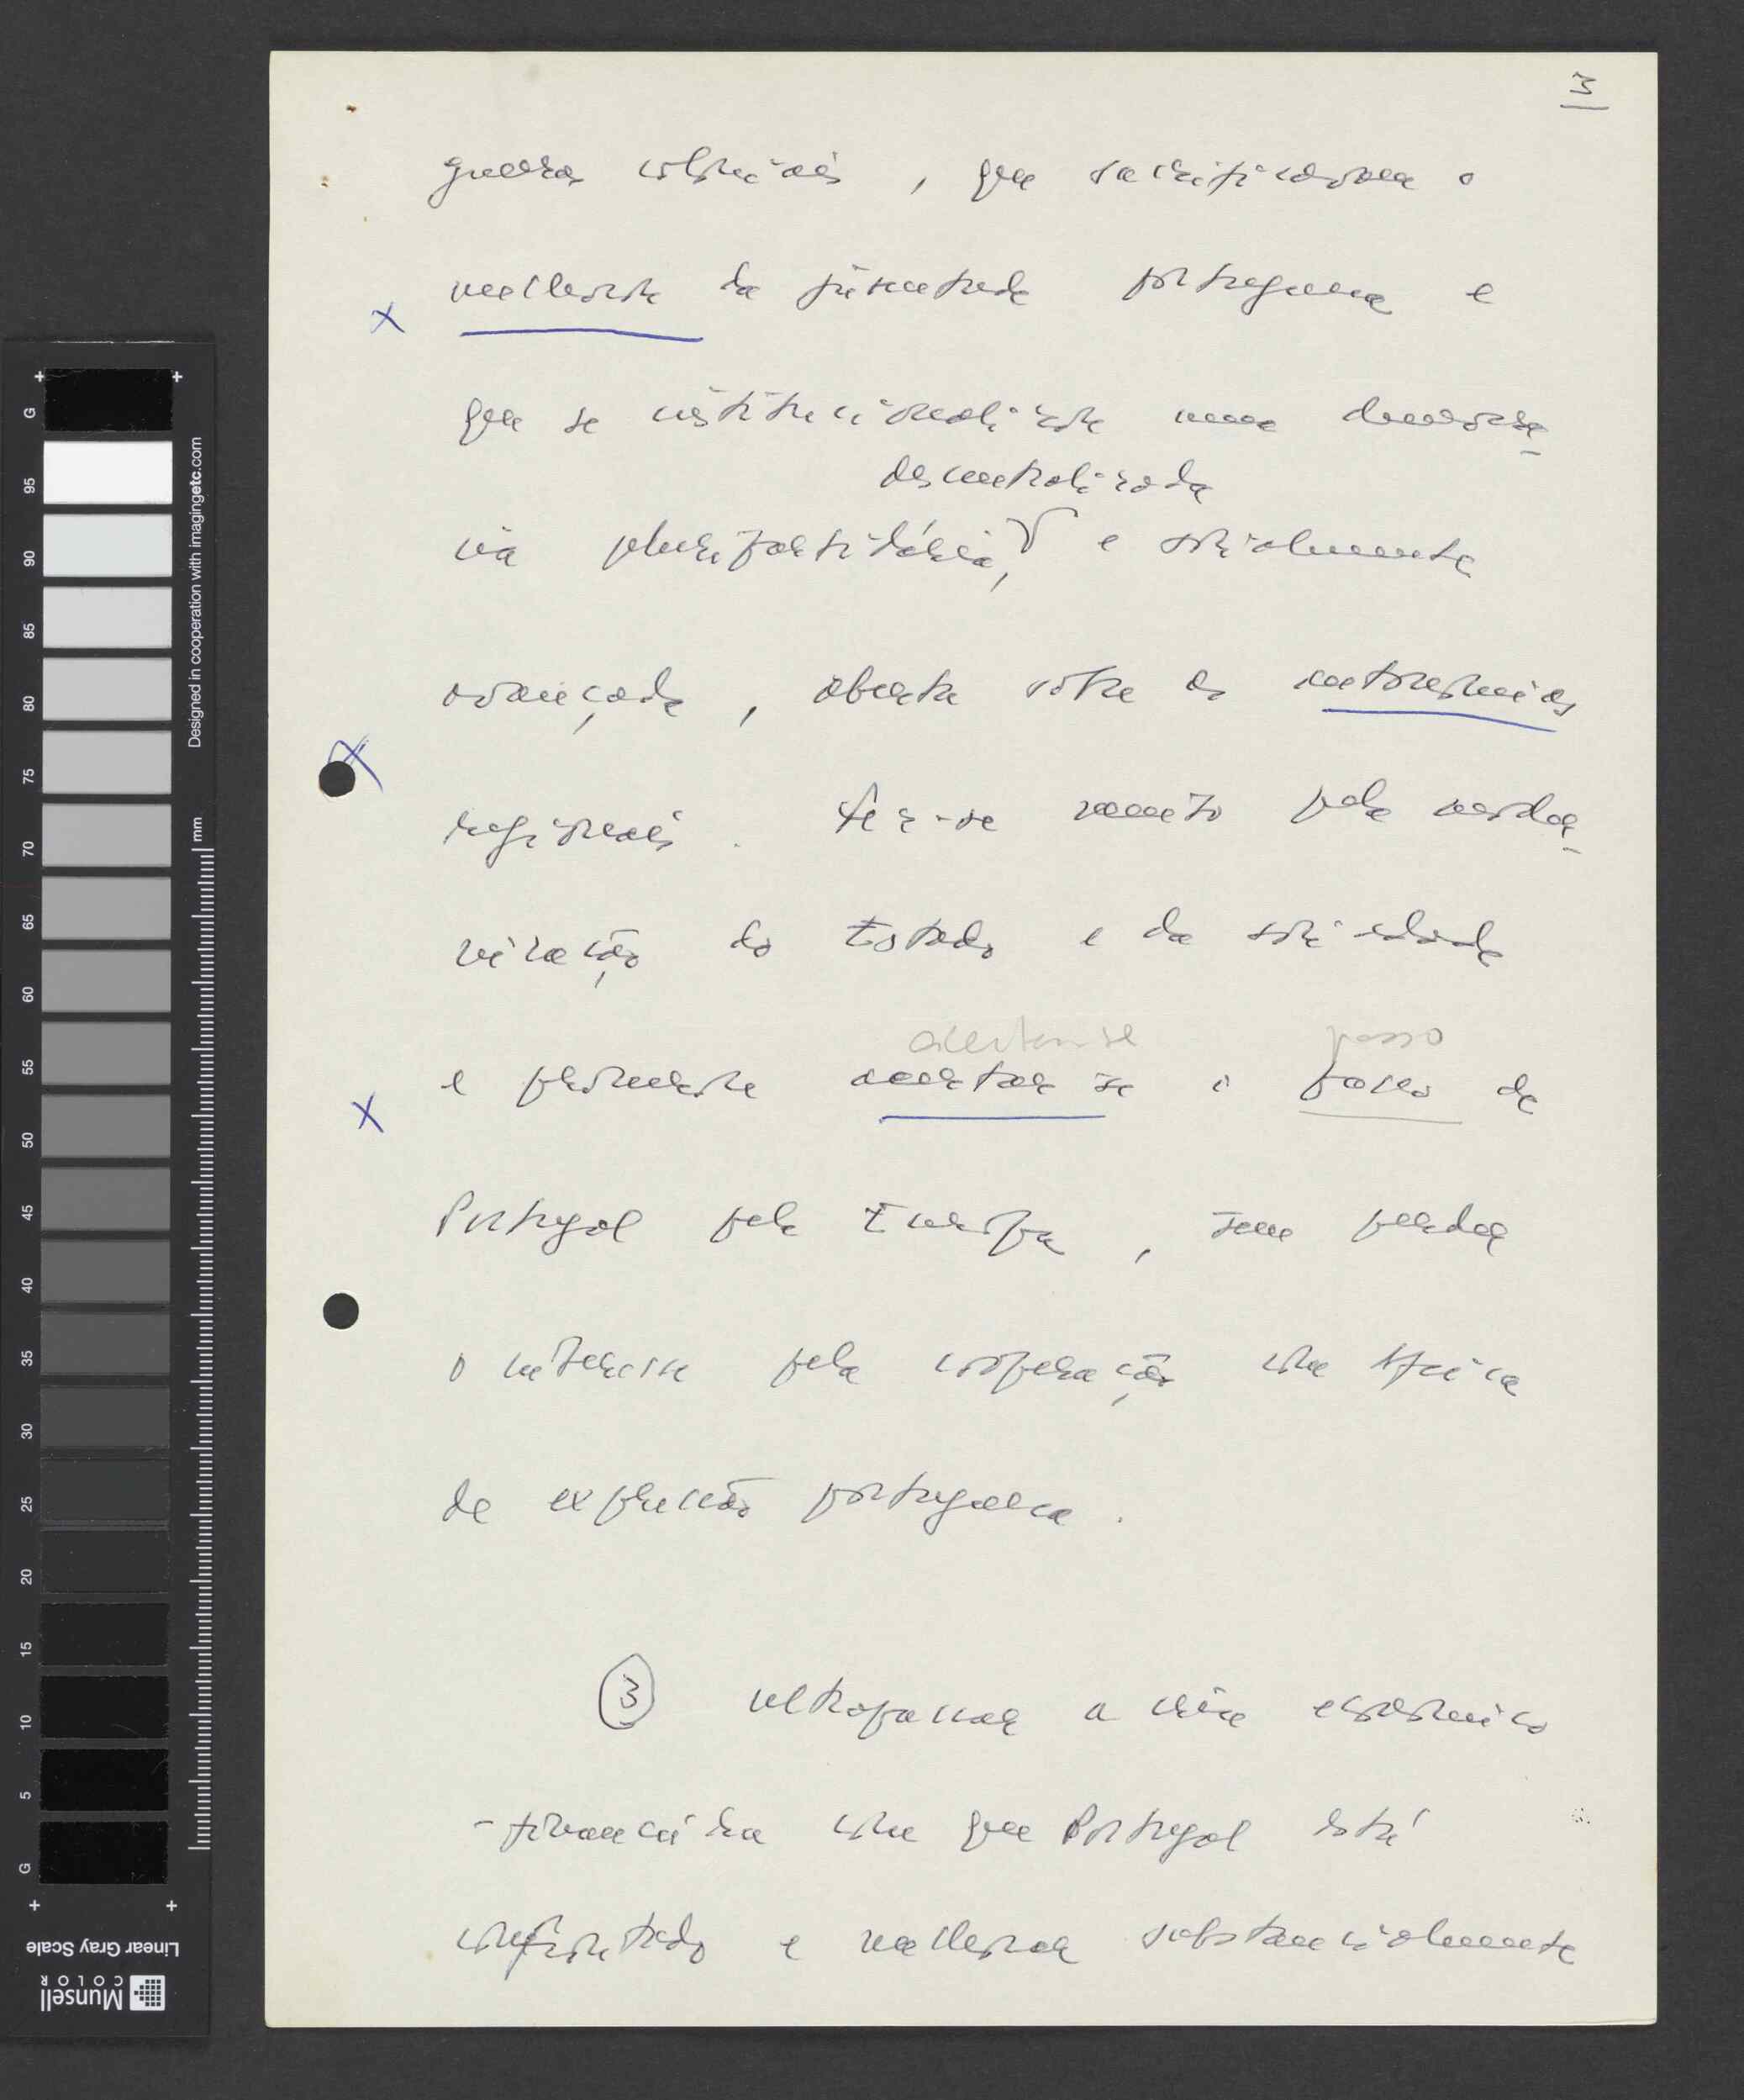 3
guerras coloniais, que sacrificaram o
melhor da juventude portuguesa e
que se institucionalizou uma democra-
descentralizada
cia pluripartidária, e socialmente
avançada, aberta sobre as autonomias
regionais. Fez-se muito pela moder-
nização do Estado e da sociedade
acertar-se passo
e procurou acertar-se o passo de
Portugal pela Europa, sem perder
o interesse pela cooperação com África
de expressão portuguesa.
3 Ultrapassar a crise económico
-financeira com que Portugal está
confrontado e melhorar substancialmente
G
95
90
85
80
75
70
65
60
55
50
45
40
35
30
25
20
15
10
5
G
mm
Designed in cooperation with imagingetc.com
Linear Gray Scale
Munsell
COLOR